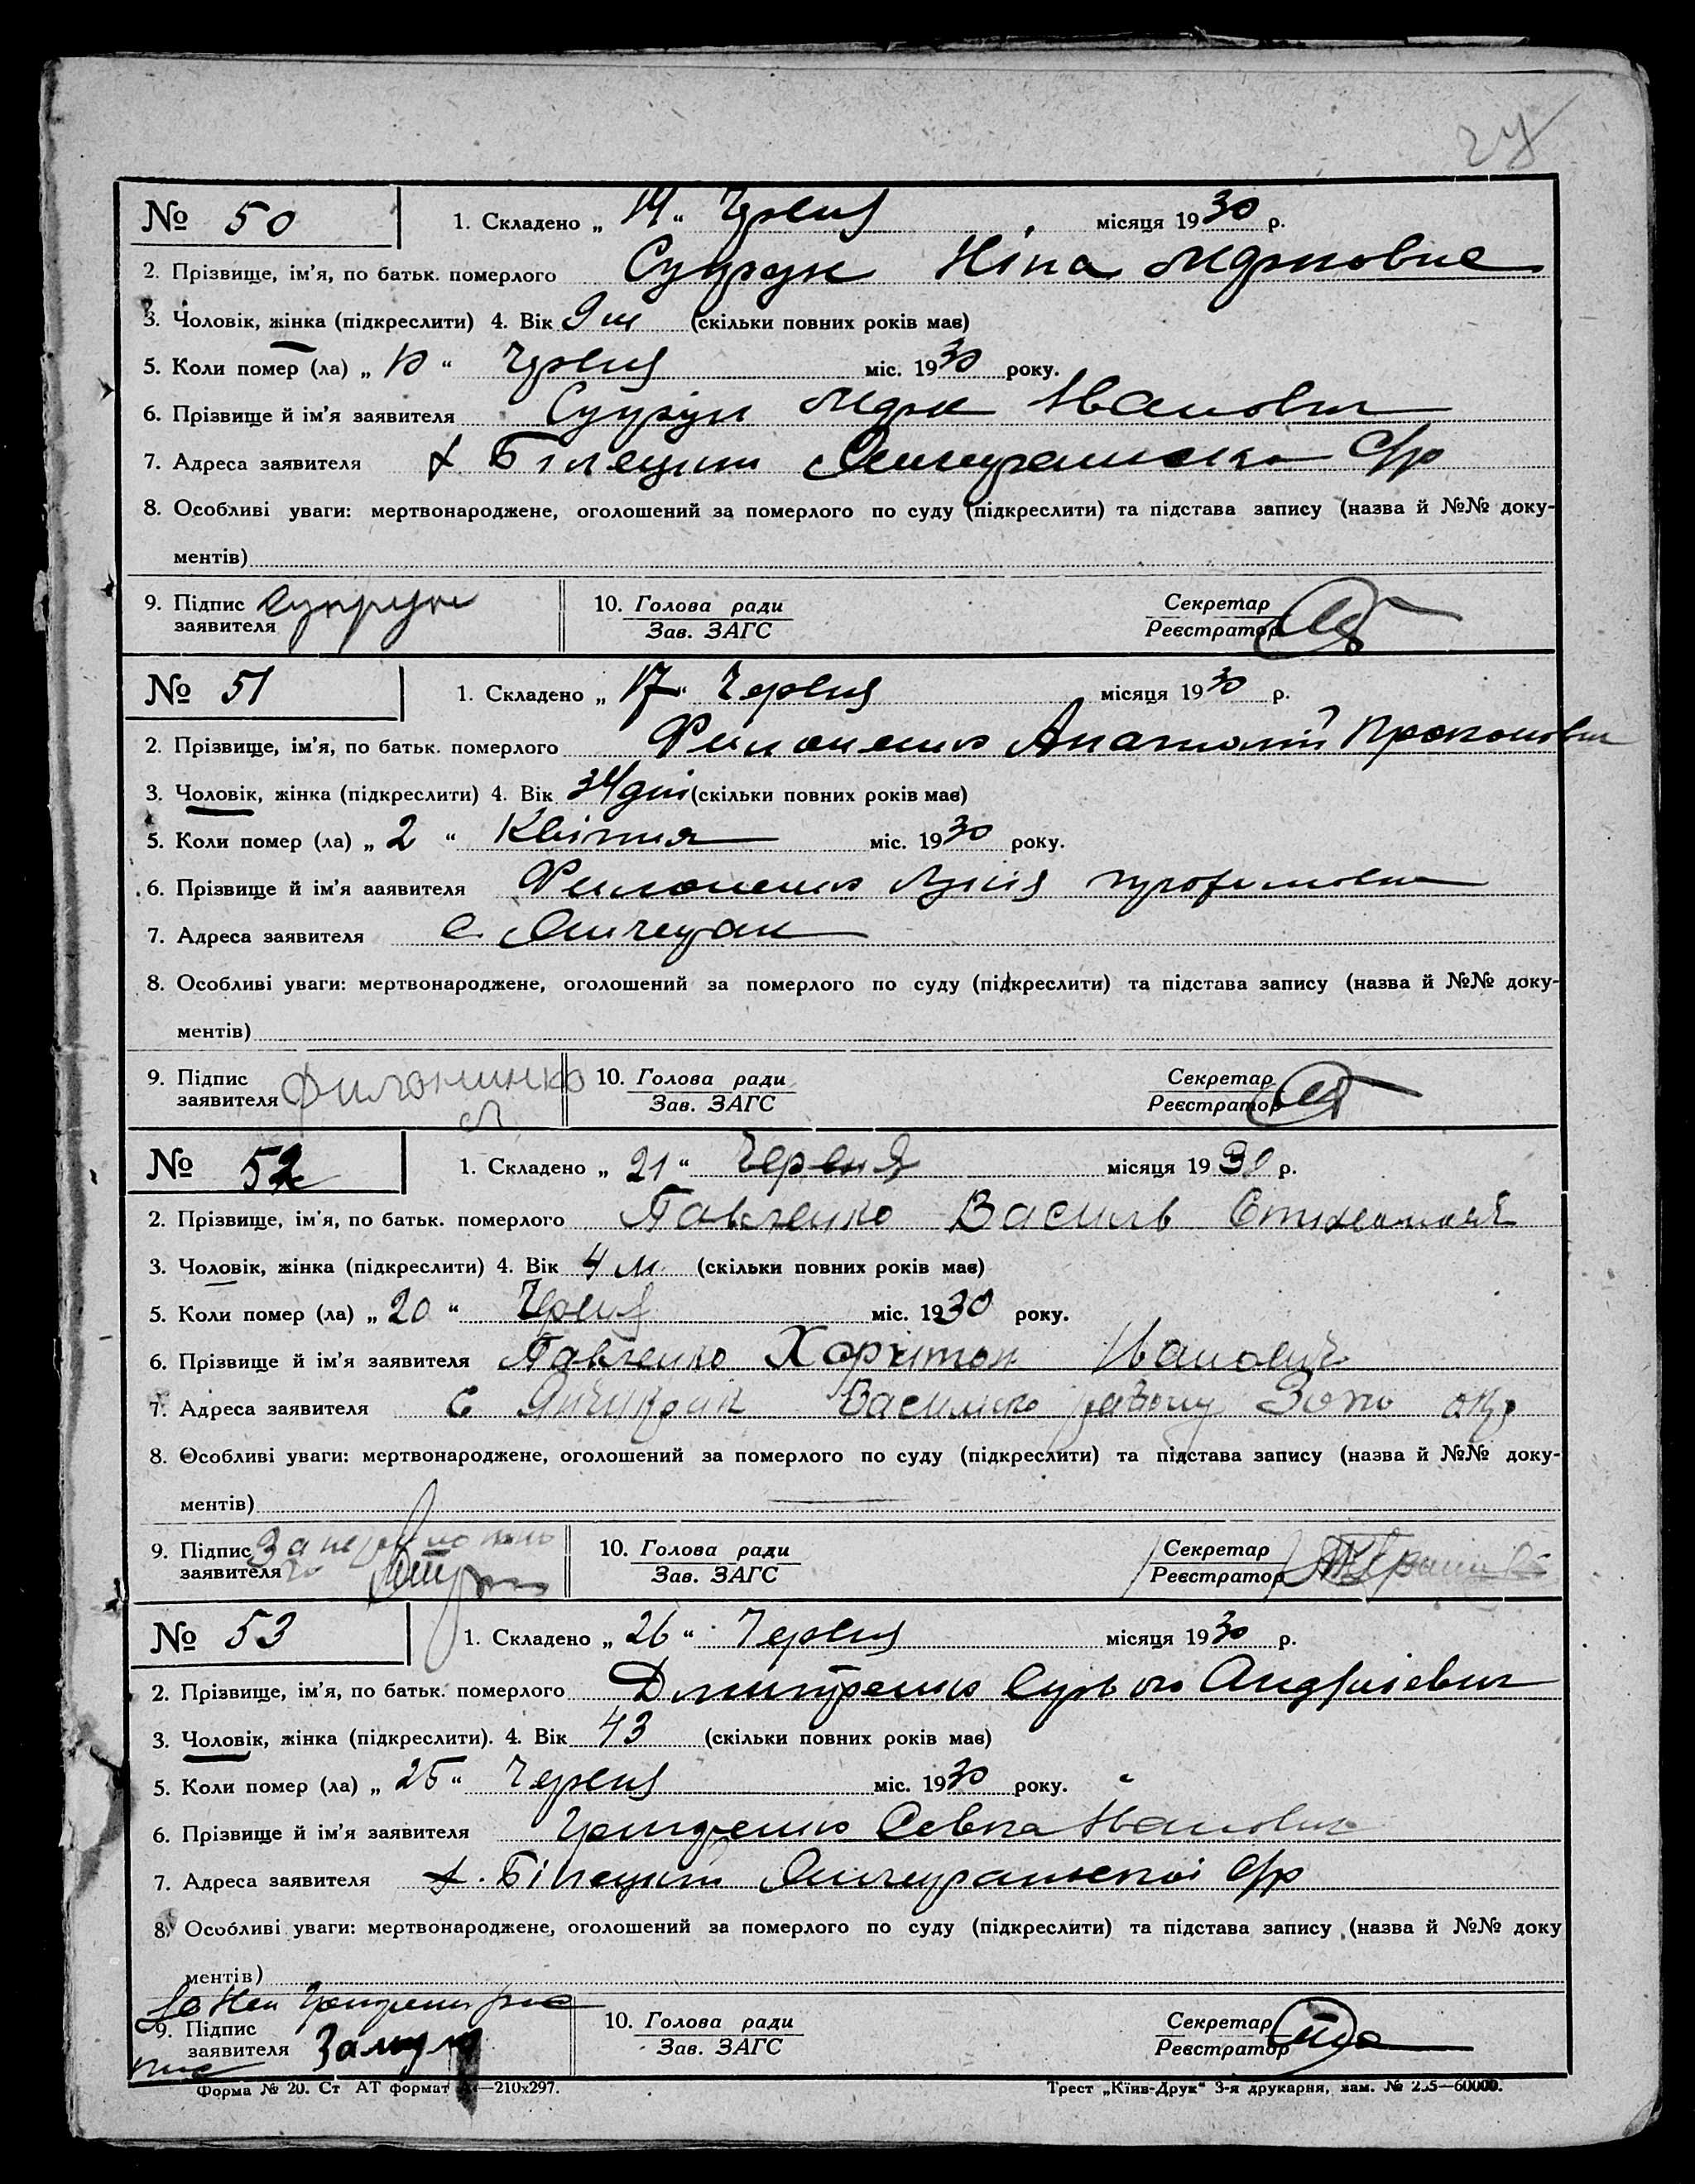 № 50 1. Складено „ 14 “ Червня місяця 1930 р.
2. Прізвище, ім’я, по батьк. померлого Супрун Ніна Марковна
3. Чоловік, жінка (підкреслити) 4. Вік 9 м (скільки повних років має)
5. Коли помер (ла) „ 10 “ Червня міс. 1930 року.
6. Прізвище й ім’я заявителя Супрун Марк Іванович
7. Адреса заявителя х Білецький с/р
8. Особливі уваги: мертвонароджене, оголошений за померлого по суду (підкреслити) та підстава запису (назва й №№ доку-
ментів)
9. Підпис заявителя Супрун 10. Голова ради Зав. ЗАГС Секретар Реєстратор
№ 51 1. Складено „ 17 “ Червня місяця 1930 р.
2. Прізвище, ім’я, по батьк. померлого Филоненко Анатолій Прокопович
3. Чоловік, жінка (підкреслити) 4. Вік 34 дні (скільки повних років має)
5. Коли помер (ла) „ 2 “ Квітня міс. 1930 року.
6. Прізвище й ім’я заявителя Филоненко
7. Адреса заявителя с. Янчекрак
8. Особливі уваги: мертвонароджене, оголошений за померлого по суду (підкреслити) та підстава запису (назва й №№ доку-
ментів)
9. Підпис заявителя Филонинко 10. Голова ради Зав. ЗАГС Секретар Реєстратор
№ 52 1. Складено „ 21 “ Червня місяця 1930 р.
2. Прізвище, ім’я, по батьк. померлого Павленко Василь
3. Чоловік, жінка (підкреслити) 4. Вік 4 м. (скільки повних років має)
5. Коли помер (ла) „ 20 “ Червня міс. 1930 року.
6. Прізвище й ім’я заявителя Павленко Харитон Іванович
7. Адреса заявителя с Янчикрак Василівко району Запо окр
8. Особливі уваги: мертвонароджене, оголошений за померлого по суду (підкреслити) та підстава запису (назва й №№ доку-
ментів)
9. Підпис заявителя За 10. Голова ради Зав. ЗАГС Секретар Реєстратор
№ 53 1. Складено „ 26 “ Червня місяця 1930 р.
2. Прізвище, ім’я, по батьк. померлого Дмитренко Андрієвич
3. Чоловік, жінка (підкреслити). 4. Вік 43 (скільки повних років має)
5. Коли помер (ла) „ 25 “ Червня міс. 1930 року.
6. Прізвище й ім’я заявителя
7. Адреса заявителя х. Білецький Янчекракської с/р
8. Особливі уваги: мертвонароджене, оголошений за померлого по суду (підкреслити) та підстава запису (назва й №№ доку
ментів)
9. Підпис заявителя 10. Голова ради Зав. ЗАГС Секретар Реєстратор
Форма № 20. Ст АТ формат —210х297. Трест „Київ-Друк“ 3-я друкарня, зам. №